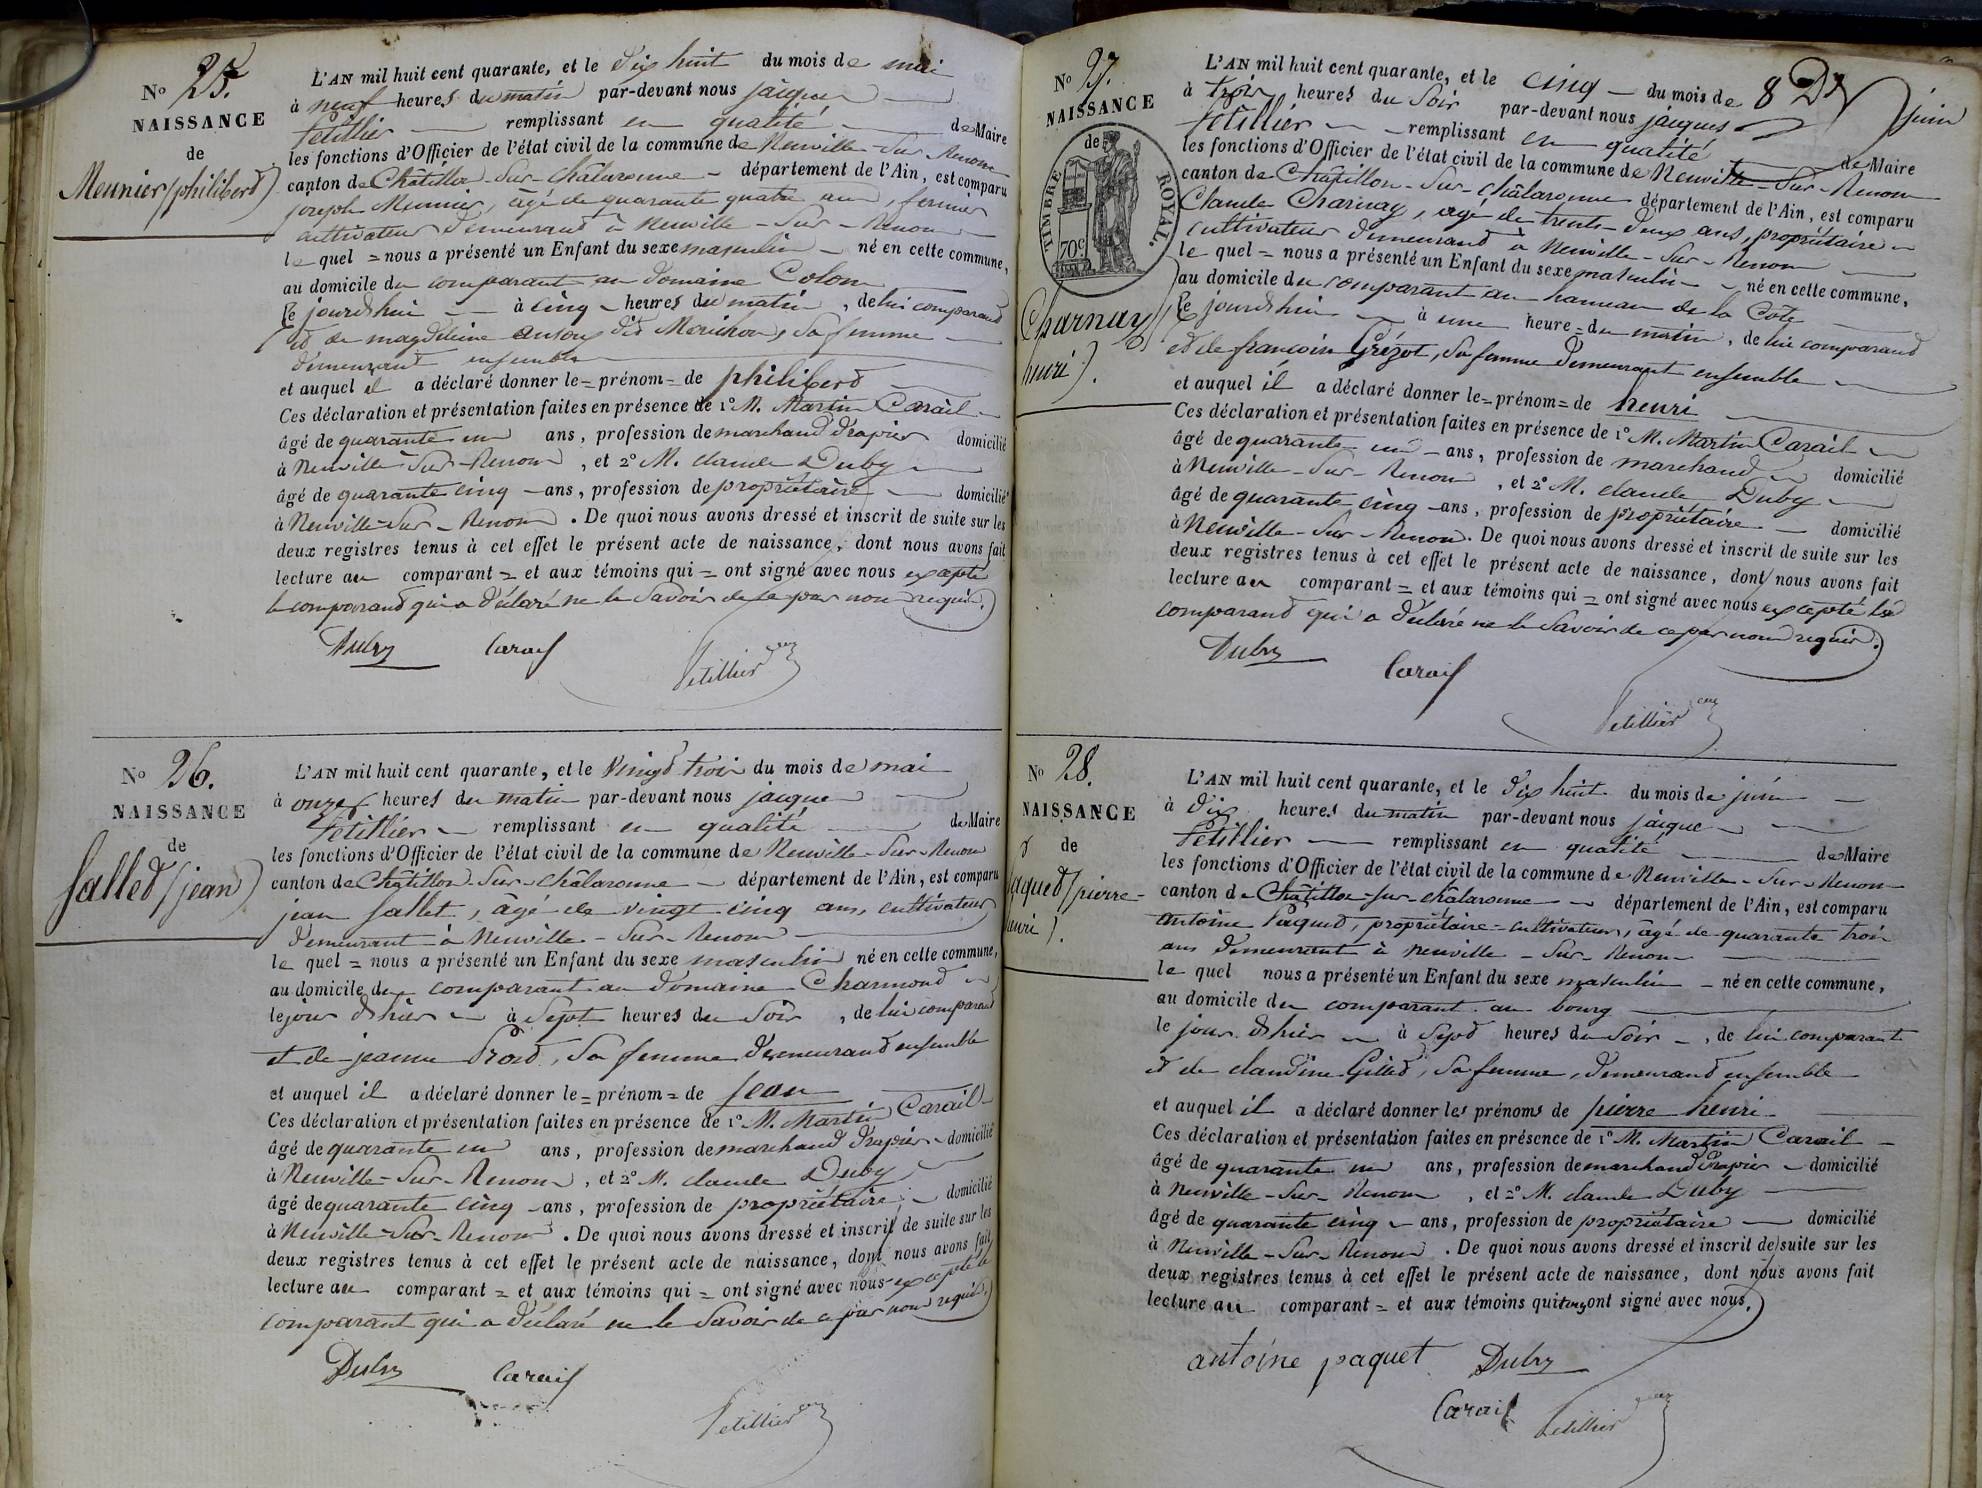 No 25.
NAISSANCE
de
Meunier (philiberd)
L'AN mil huit cent quarante, et le dix huit du mois de mai
à neuf heures du matin par-devant nous jacques
Petillier remplissant en qualité de Maire
les fonctions d'Officier de l'état civil de la commune de Neuville-Sur-Renom
canton de Châtillon-Sur-châlaronne département de l'Ain, est comparu
joseph Meunier, âgé de quarante quatre ans, fermier
cultivateur demeurand à Neuville-Sur-Renom
le quel = nous a présenté un Enfant du sexe masculin né en cette commune,
au domicile du comparant au domaine Colom
Ce jourdhui à cinq heures du matin, de lui comparand
et de magdeleine dit Morichon, Sa femme
demeurant ensemble
et auquel il a déclaré donner le = prénom = de philiberd
Ces déclaration et présentation faites en présence de 1º M. Martin Carail
âgé de quarante un ans, profession de marchand drapier domicilié
à Neuville-Sur-Renom, et 2º M. claude Duby
âgé de quarante cinq ans, profession de propriétaire domicilié
à Neuville-Sur-Renom. De quoi nous avons dressé et inscrit de suite sur les
deux registres tenus à cet effet le présent acte de naissance, dont nous avons fait
lecture au comparant = et aux témoins qui = ont signé avec nous excepté
le comparand qui a déclaré ne le Savoir de ce par nous requis.
Duby Carail Petillier
No 26.
NAISSANCE
de
Salled (jean)
L'AN mil huit cent quarante, et le vingt trois du mois de mai
à onze heures du matin par-devant nous jacques
Petillier remplissant en qualité de Maire
les fonctions d'Officier de l'état civil de la commune de Neuville-Sur-Renom
canton de Châtillon-Sur-châlaronne département de l'Ain, est comparu
jean Sallet, âgé de vingt cinq ans, cultivateur
demeurant à Neuville-Sur-Renom
le quel = nous a présenté un Enfant du sexe masculin né en cette commune,
au domicile du comparant au domaine Charmond
le jour dhier à Sept heures du Soir, de lui comparand
et de jeanne, Sa femme demeurand ensemble
et auquel il a déclaré donner le = prénom = de jean
Ces déclaration et présentation faites en présence de 1º M. Martin Carail
âgé de quarante un ans, profession de marchand drapier domicilié
à Neuville-Sur-Renom, et 2º M. claude Duby
âgé de quarante cinq ans, profession de propriétaire domicilié
à Neuville-Sur-Renom. De quoi nous avons dressé et inscrit de suite sur les
deux registres tenus à cet effet le présent acte de naissance, dont nous avons fait
lecture au comparant = et aux témoins qui = ont signé avec nous excepté le
comparant qui a déclaré ne le Savoir de ce par nous requis.
Duby Carail Petillier
No 27.
NAISSANCE
de
TIMBRE ROYAL.
70c
Charnay (henri).
L'AN mil huit cent quarante, et le cinq du mois de juin
à trois heures du Soir par-devant nous jacques
Petillier remplissant en qualité de Maire
les fonctions d'Officier de l'état civil de la commune de Neuville-Sur-Renom
canton de Châtillon-Sur-châlaronne département de l'Ain, est comparu
Claude Charnay, agé de trente-deux ans, propriétaire
cultivateur demeurand à Neuville-Sur-Renom
le quel = nous a présenté un Enfant du sexe masculin né en cette commune,
au domicile du comparant au hameau de la Côte
Ce jourdhui à une heure = du matin, de lui comparand
et de françoise Grézot, Sa femme demeurant ensemble
et auquel il a déclaré donner le = prénom = de henri
Ces déclaration et présentation faites en présence de 1º M. Martin Carail
âgé de quarante un ans, profession de marchand domicilié
à Neuville-Sur-Renom, et 2º M. claude Duby
âgé de quarante cinq ans, profession de propriétaire domicilié
à Neuville-Sur-Renom. De quoi nous avons dressé et inscrit de suite sur les
deux registres tenus à cet effet le présent acte de naissance, dont nous avons fait
lecture au comparant = et aux témoins qui = ont signé avec nous excepté le
comparand qui a déclaré ne le Savoir de ce par nous requis.
Duby Carail Petillier
No 28.
NAISSANCE
de
paqued (pierre-
henri).
L'AN mil huit cent quarante, et le dix huit du mois de juin
à dix heures du matin par-devant nous jacques
Petillier remplissant en qualité de Maire
les fonctions d'Officier de l'état civil de la commune de Neuville-Sur-Renom
canton de Châtillon-sur-châlaronne département de l'Ain, est comparu
antoine Paqued, propriétaire-cultivateur, âgé de quarante trois
ans demeurant à neuville-Sur-Renom
le quel nous a présenté un Enfant du sexe masculin né en cette commune,
au domicile du comparant au bourg
le jour dhier à Sept heures du Soir, de lui comparant
et de claudine Gilled, Sa femme, demeurand ensemble
et auquel il a déclaré donner les prénoms de pierre henri
Ces déclaration et présentation faites en présence de 1º M. Martin Carail
âgé de quarante un ans, profession de marchand drapier domicilié
à Neuville-Sur-Renom, et 2º M. claude Duby
âgé de quarante cinq ans, profession de propriétaire domicilié
à Neuville-Sur-Renom. De quoi nous avons dressé et inscrit de suite sur les
deux registres tenus à cet effet le présent acte de naissance, dont nous avons fait
lecture au comparant = et aux témoins qui ont signé avec nous.
antoine paquet Duby
Carail Petillier